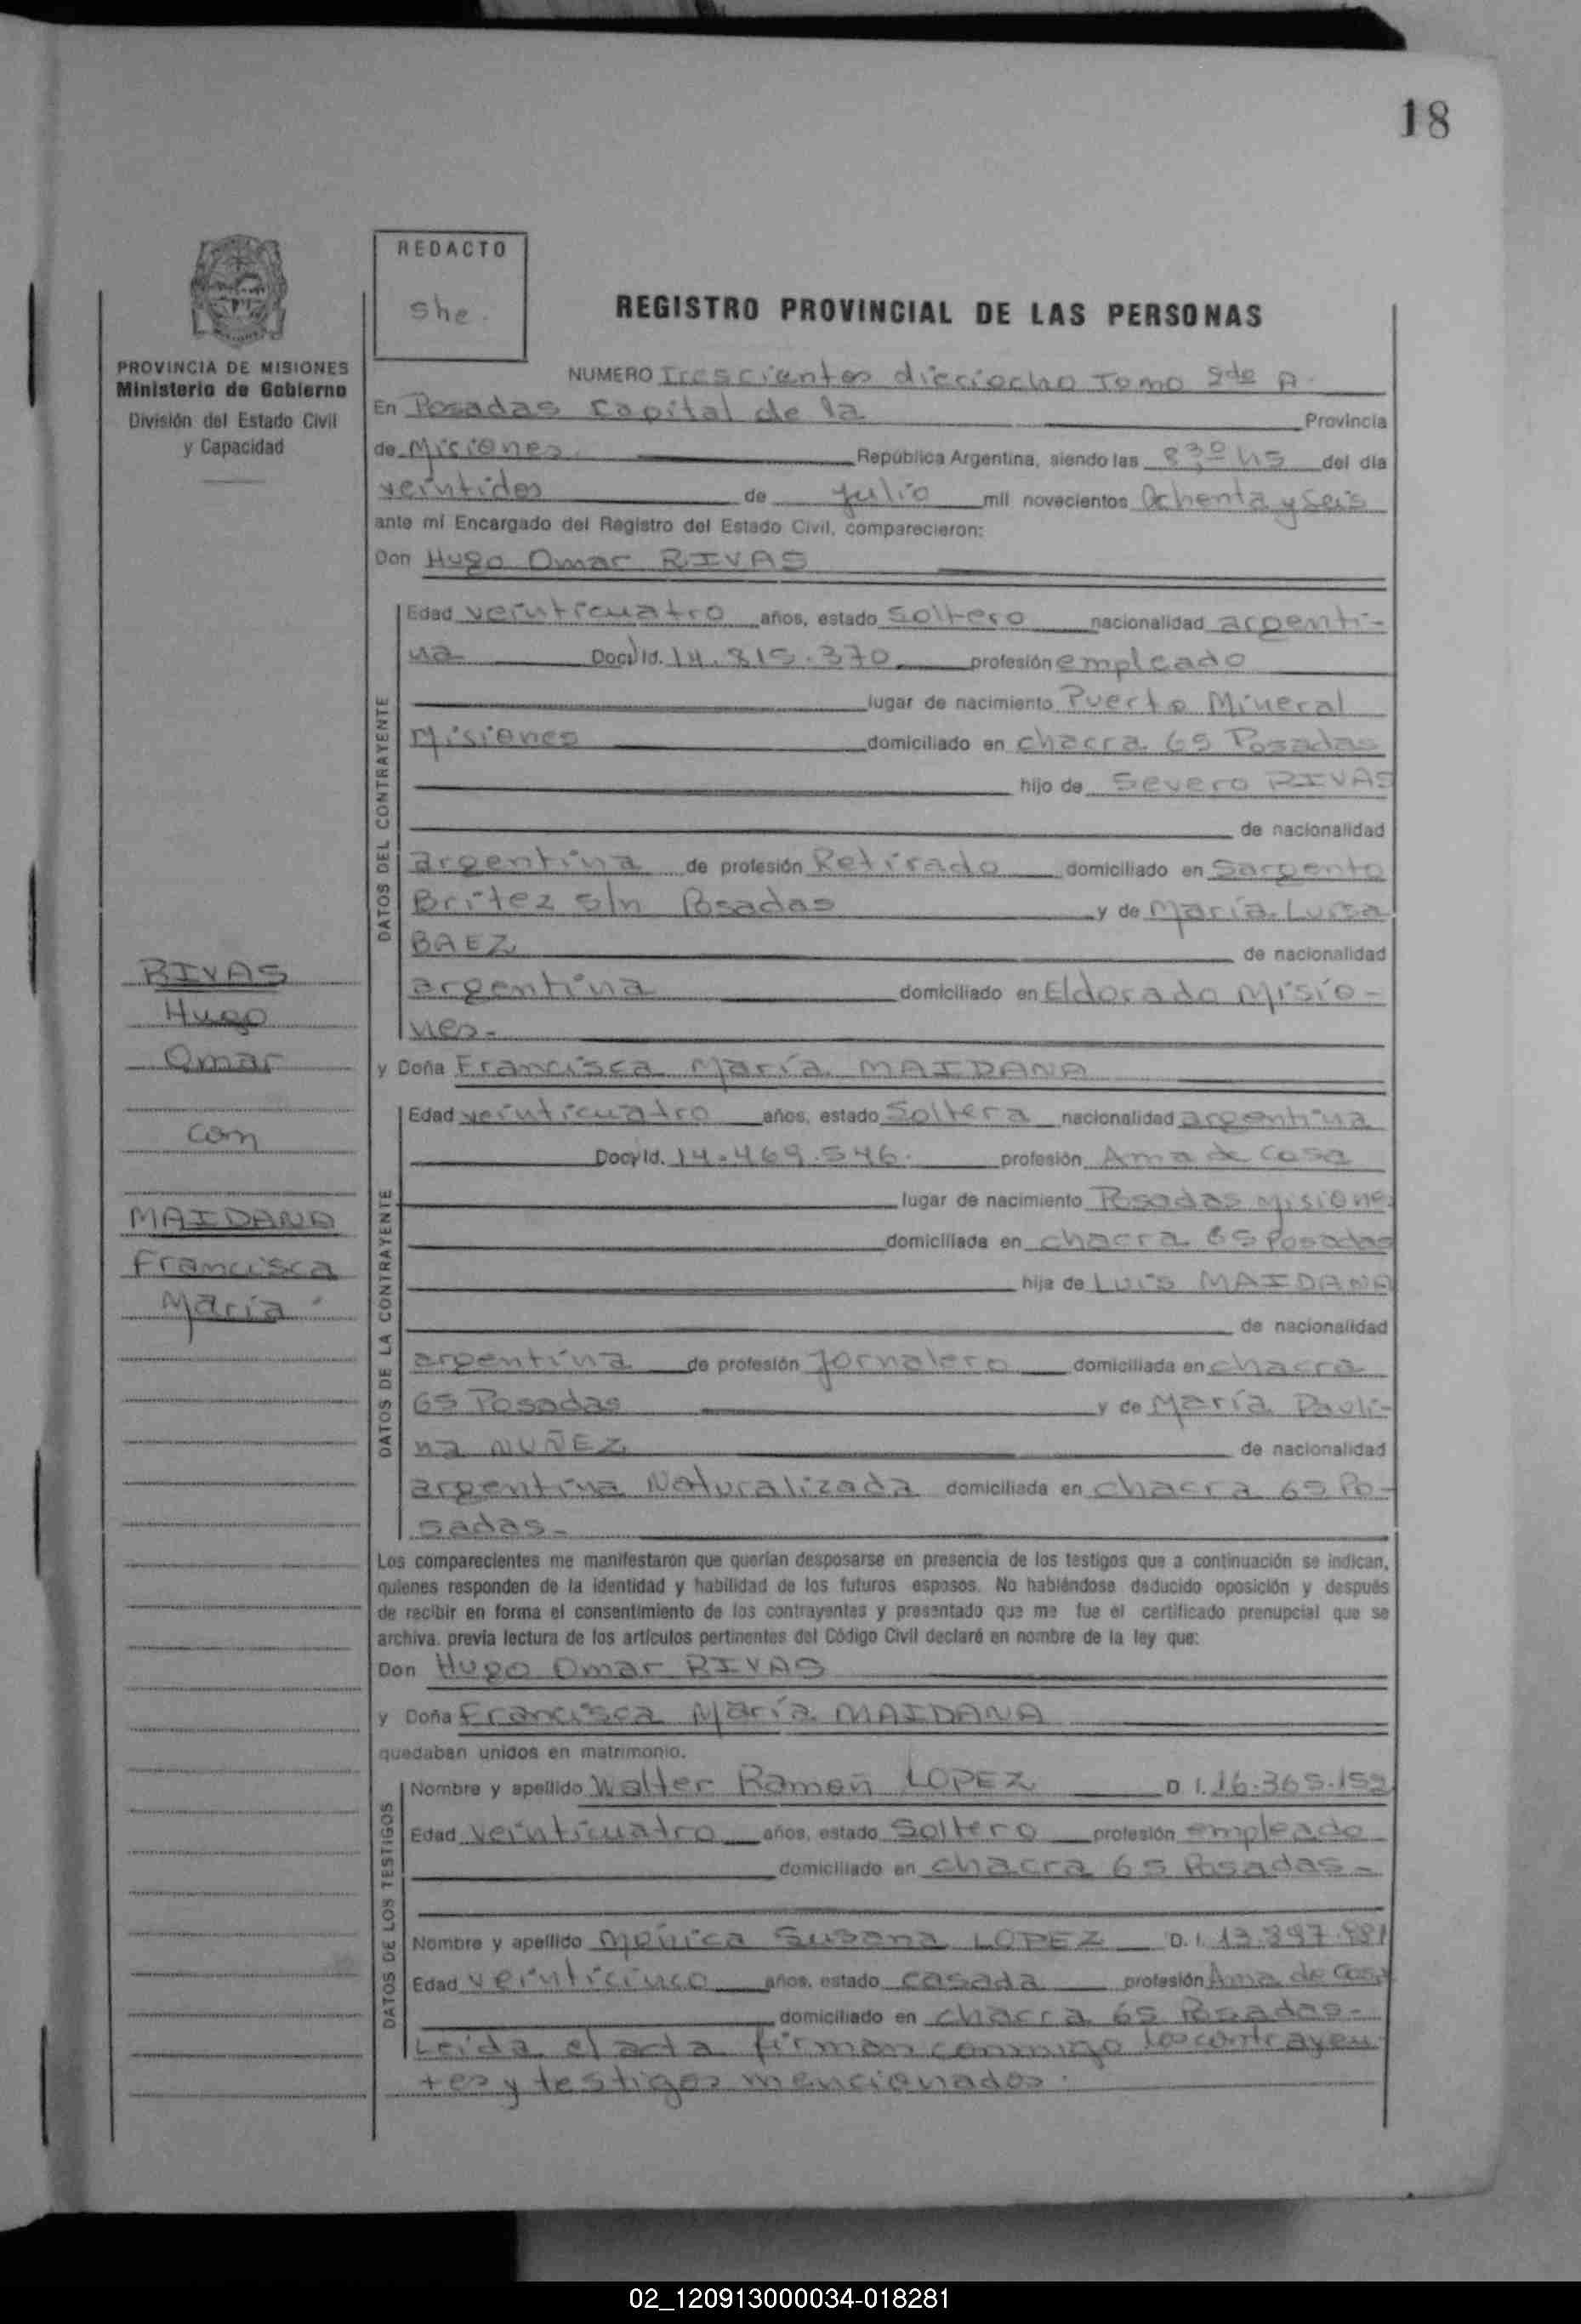 18
REDACTO
she.
REGISTRO PROVINCIAL DE LAS PERSONAS
PROVINCIA DE MISIONES
Ministerio de Gobierno
División del Estado Civil
y Capacidad
NUMERO Trescientos dieciocho Tomo 2do A.
En Posadas Capital de la Provincia
de Misiones República Argentina, siendo las 8,30 hs del día
veintidos de Julio mil novecientos Ochenta y Seis
ante mí Encargado del Registro del Estado Civil, comparecieron:
Don Hugo Omar RIVAS
DATOS DEL CONTRAYENTE
Edad veinticuatro años, estado Soltero nacionalidad argenti-
na Doc. Id. 14.815.370 profesión empleado
lugar de nacimiento Puerto Mineral
Misiones domiciliado en chacra 65 Posadas
hijo de Severo RIVAS
de nacionalidad
argentina de profesión Retirado domiciliado en Sargento
Britez s/n Posadas y de María Luisa
BAEZ de nacionalidad
argentina domiciliado en Eldorado Misio-
nes.
RIVAS
Hugo
Omar
con
MAIDANA
Francisca
María
y Doña Francisca María MAIDANA
DATOS DE LA CONTRAYENTE
Edad veinticuatro años, estado Soltera nacionalidad argentina
Doc. Id. 14.469.546. profesión Ama de Casa
lugar de nacimiento Posadas Misiones
domiciliada en chacra 65 Posadas
hija de Luis MAIDANA
de nacionalidad
argentina de profesión Jornalero domiciliada en chacra
65 Posadas y de María Pauli-
na NUÑEZ de nacionalidad
argentina Naturalizada domiciliada en chacra 65 Po-
sadas-
Los comparecientes me manifestaron que querían desposarse en presencia de los testigos que a continuación se indican,
quienes responden de la identidad y habilidad de los futuros esposos. No habiéndose deducido oposición y después
de recibir en forma el consentimiento de los contrayentes y presentado que me fue el certificado prenupcial que se
archiva. previa lectura de los artículos pertinentes del Código Civil declaré en nombre de la ley que:
Don Hugo Omar RIVAS
y Doña Francisca María MAIDANA
quedaban unidos en matrimonio.
DATOS DE LOS TESTIGOS
Nombre y apellido Walter Ramón LOPEZ D. I. 16.365.152
Edad veinticuatro años, estado Soltero profesión empleado
domiciliado en chacra 65 Posadas-
Nombre y apellido Mónica Susana LOPEZ D. I.
Edad veinticinco años, estado casada profesión Ama de Casa
domiciliado en chacra 65 Posadas-
Leida el acta firman conmigo los contrayen
tes y testigos mencionados.
02_120913000034-018281